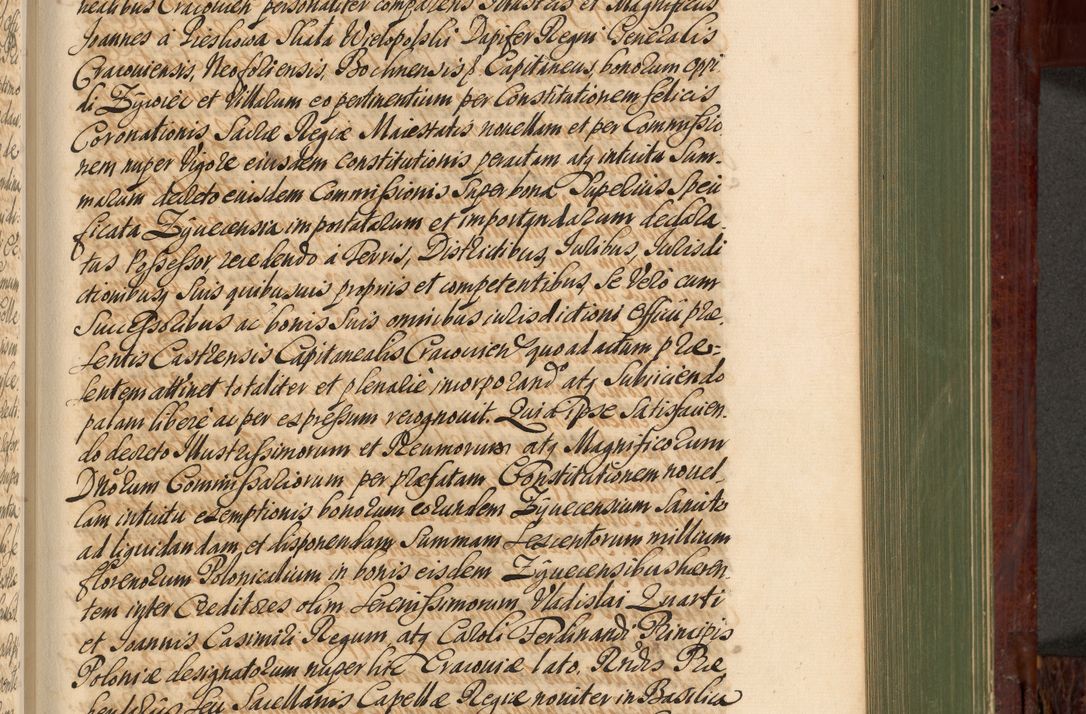 nealibus Cracouien personaliter comparens Illustris et Magnificus
Joannes à Pieskowa Skała Wielopolski Dapifer Regni Generalis
Cracouiensis, Neoforiensis, Bochnensis Capitaneus, bonorum oppi
di Zÿwiec et Villarum eo pertinentium per Constitutionem felicis
Coronationis Sacræ Regiæ Maiestatis nouellam et per Commissio
nem nuper vigore eiusdem constitutionis peractam atq intuitu Sum-
marum decreto eiusdem Commissionis Super bona Superius Speci
ficata Zÿwecensia importatarum et importandarum declara
tus Possessor, recedendo à Terris, Districtibus, Iuribus, Iurisdi
ctionibusq Suis quibusuis proprijs et competentibus, Se Vero cum
Successoribus ac bonis Suis omnibus iurisdictioni Officij præ
sentis Castrensis Capitanealis Cracouien quo ad actum præ-
sentem attinet totaliter et plenariè incorporand atq Subijciendo
palam liberè ac per expressum recognouit. Quia Ipse Satisfacien
do decreto Illustrissimorum et Reumorum atq Magnificorum
Dnorum Commissariorum per præfatam Constitutionem nouel
lam intuitu exemptionis bonorum eorundem Zÿwecensium Sancito
ad liquidandam et disponendam Summam Sexcentorum millium
florenorum Polonicalium in bonis eisdem Zÿwecensibus hæren
tem inter Creditores olim Serenissimorum Vladislai Quarti
et Joannis Casimiri Regum atq Caroli Ferdinandi Principis
Poloniæ designatorum nuper hic Cracouiæ lato, Rndis Præ
bendarijs Seu Sacellanis Capellæ Regiæ nouiter in Basilica